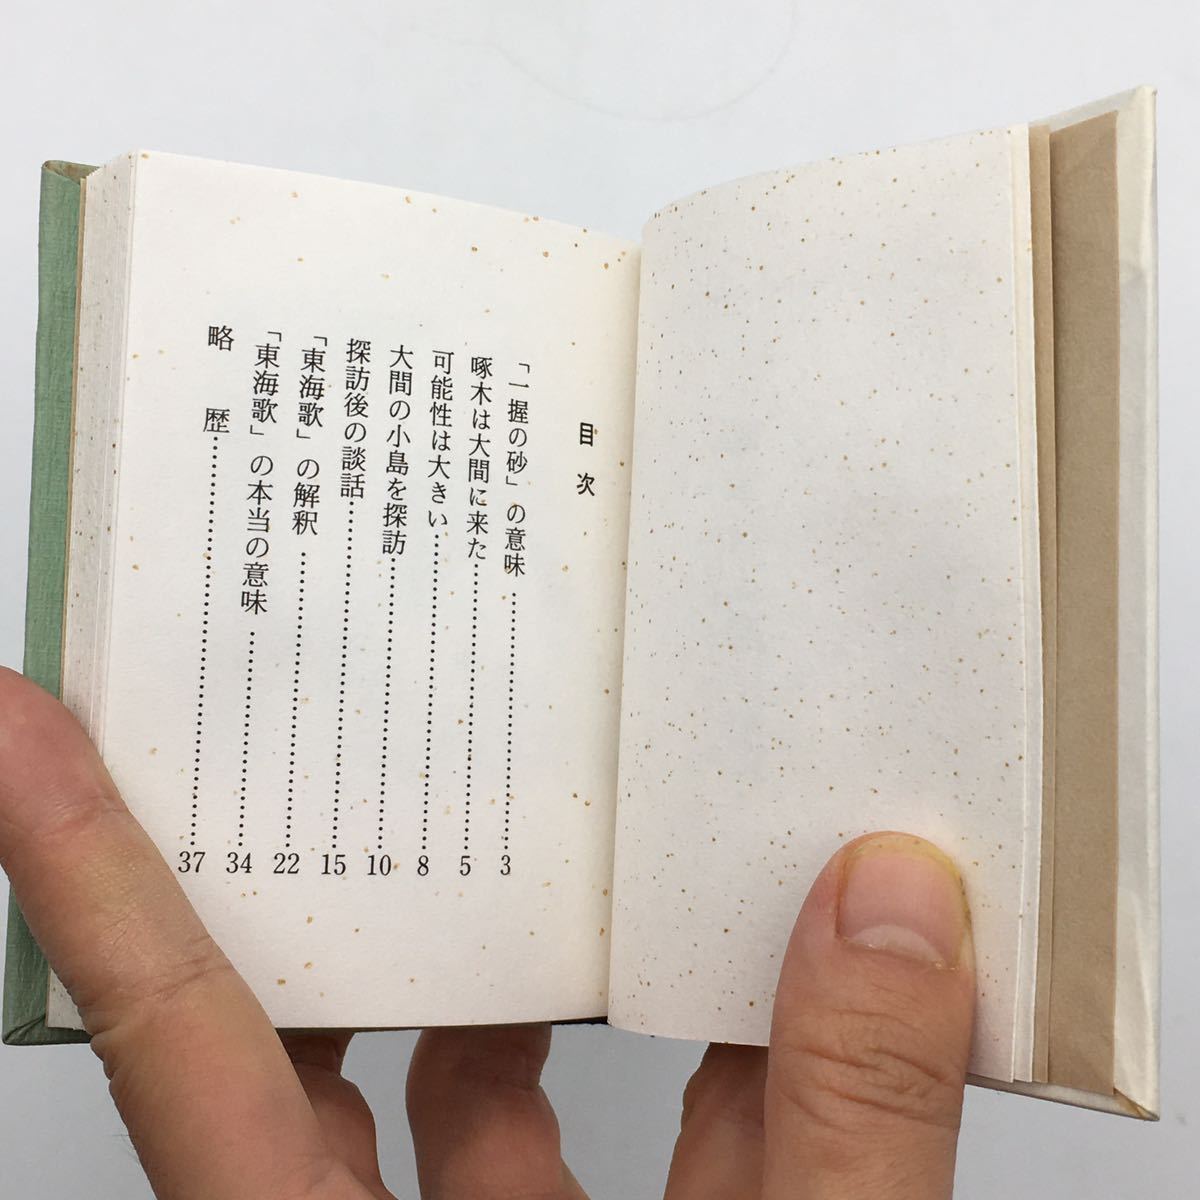 目次
「一握の砂」の意味……………………3
啄木は大間に来た……………………5
可能性は大きい……………………8
大間の小島を探訪……………………10
探訪後の談話……………………15
「東海歌」の解釈……………………22
「東海歌」の本当の意味……………………34
略　歴……………………37